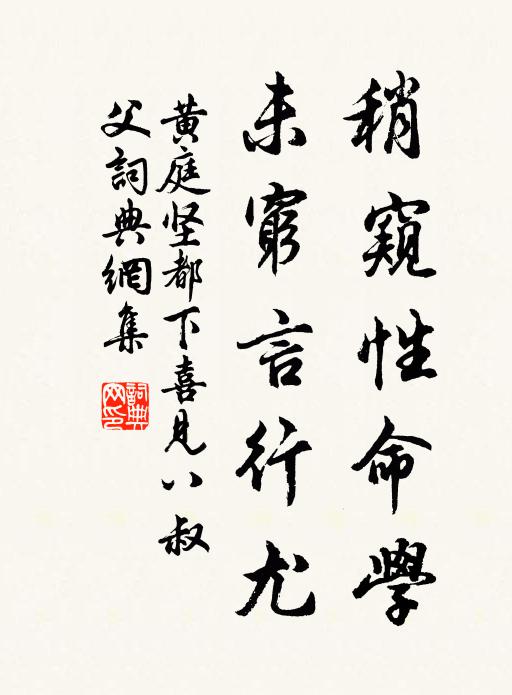 稍窺性命學
未窮言行尤
黄庭坚都下喜見八叔
父詞典網集
詞典網印